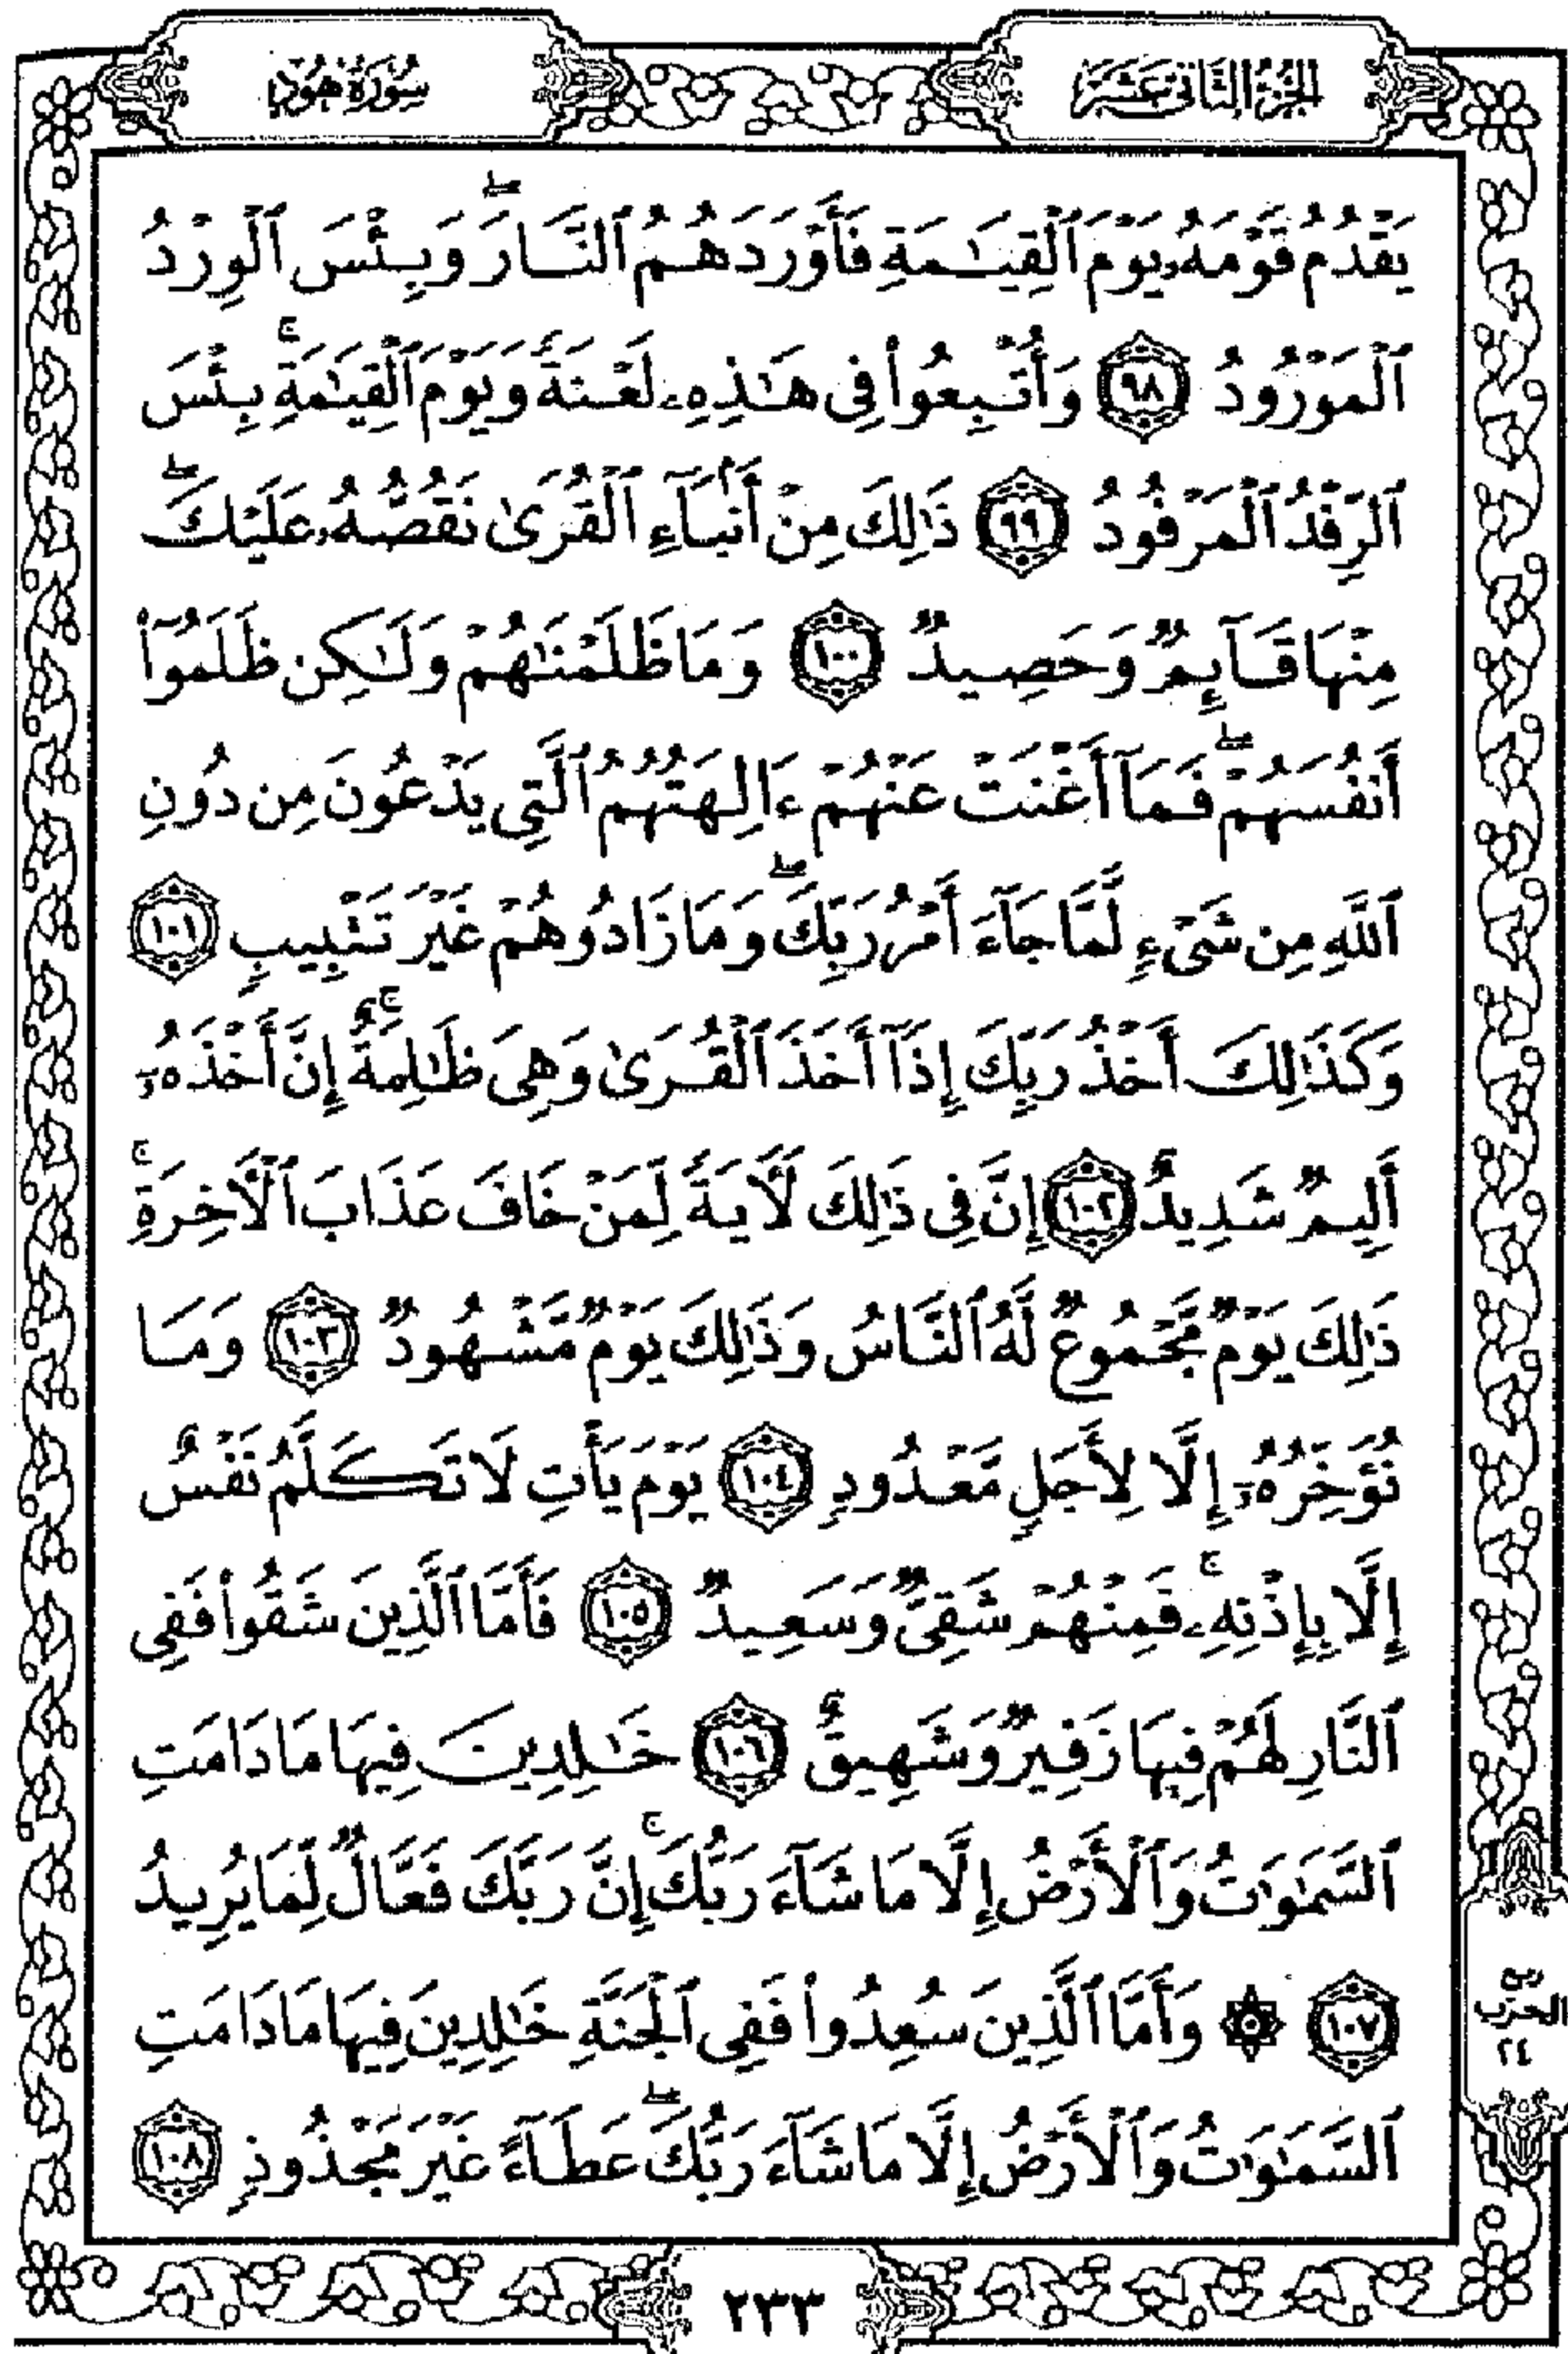 الجزء الثاني عشر
سورة هود
يَقْدُمُ قَوْمَهُۥ يَوْمَ ٱلْقِيَـٰمَةِ فَأَوْرَدَهُمُ ٱلنَّارَ ۖ وَبِئْسَ ٱلْوِرْدُ
ٱلْمَوْرُودُ ٩٨ وَأُتْبِعُوا۟ فِى هَـٰذِهِۦ لَعْنَةً وَيَوْمَ ٱلْقِيَـٰمَةِ ۚ بِئْسَ
ٱلرِّفْدُ ٱلْمَرْفُودُ ٩٩ ذَٰلِكَ مِنْ أَنۢبَآءِ ٱلْقُرَىٰ نَقُصُّهُۥ عَلَيْكَ ۖ
مِنْهَا قَآئِمٌ وَحَصِيدٌ ١٠٠ وَمَا ظَلَمْنَـٰهُمْ وَلَـٰكِن ظَلَمُوٓا۟
أَنفُسَهُمْ ۖ فَمَآ أَغْنَتْ عَنْهُمْ ءَالِهَتُهُمُ ٱلَّتِى يَدْعُونَ مِن دُونِ
ٱللَّهِ مِن شَىْءٍ لَّمَّا جَآءَ أَمْرُ رَبِّكَ ۖ وَمَا زَادُوهُمْ غَيْرَ تَتْبِيبٍ ١٠١
وَكَذَٰلِكَ أَخْذُ رَبِّكَ إِذَآ أَخَذَ ٱلْقُرَىٰ وَهِىَ ظَـٰلِمَةٌ ۚ إِنَّ أَخْذَهُۥٓ
أَلِيمٌ شَدِيدٌ ١٠٢ إِنَّ فِى ذَٰلِكَ لَـَٔايَةً لِّمَنْ خَافَ عَذَابَ ٱلْـَٔاخِرَةِ ۚ
ذَٰلِكَ يَوْمٌ مَّجْمُوعٌ لَّهُ ٱلنَّاسُ وَذَٰلِكَ يَوْمٌ مَّشْهُودٌ ١٠٣ وَمَا
نُؤَخِّرُهُۥٓ إِلَّا لِأَجَلٍ مَّعْدُودٍ ١٠٤ يَوْمَ يَأْتِ لَا تَكَلَّمُ نَفْسٌ
إِلَّا بِإِذْنِهِۦ ۚ فَمِنْهُمْ شَقِىٌّ وَسَعِيدٌ ١٠٥ فَأَمَّا ٱلَّذِينَ شَقُوا۟ فَفِى
ٱلنَّارِ لَهُمْ فِيهَا زَفِيرٌ وَشَهِيقٌ ١٠٦ خَـٰلِدِينَ فِيهَا مَا دَامَتِ
ٱلسَّمَـٰوَٰتُ وَٱلْأَرْضُ إِلَّا مَا شَآءَ رَبُّكَ ۚ إِنَّ رَبَّكَ فَعَّالٌ لِّمَا يُرِيدُ
١٠٧ ۞ وَأَمَّا ٱلَّذِينَ سُعِدُوا۟ فَفِى ٱلْجَنَّةِ خَـٰلِدِينَ فِيهَا مَا دَامَتِ
ٱلسَّمَـٰوَٰتُ وَٱلْأَرْضُ إِلَّا مَا شَآءَ رَبُّكَ ۖ عَطَآءً غَيْرَ مَجْذُوذٍ ١٠٨
ربع
الحزب
٢٤
٢٣٣